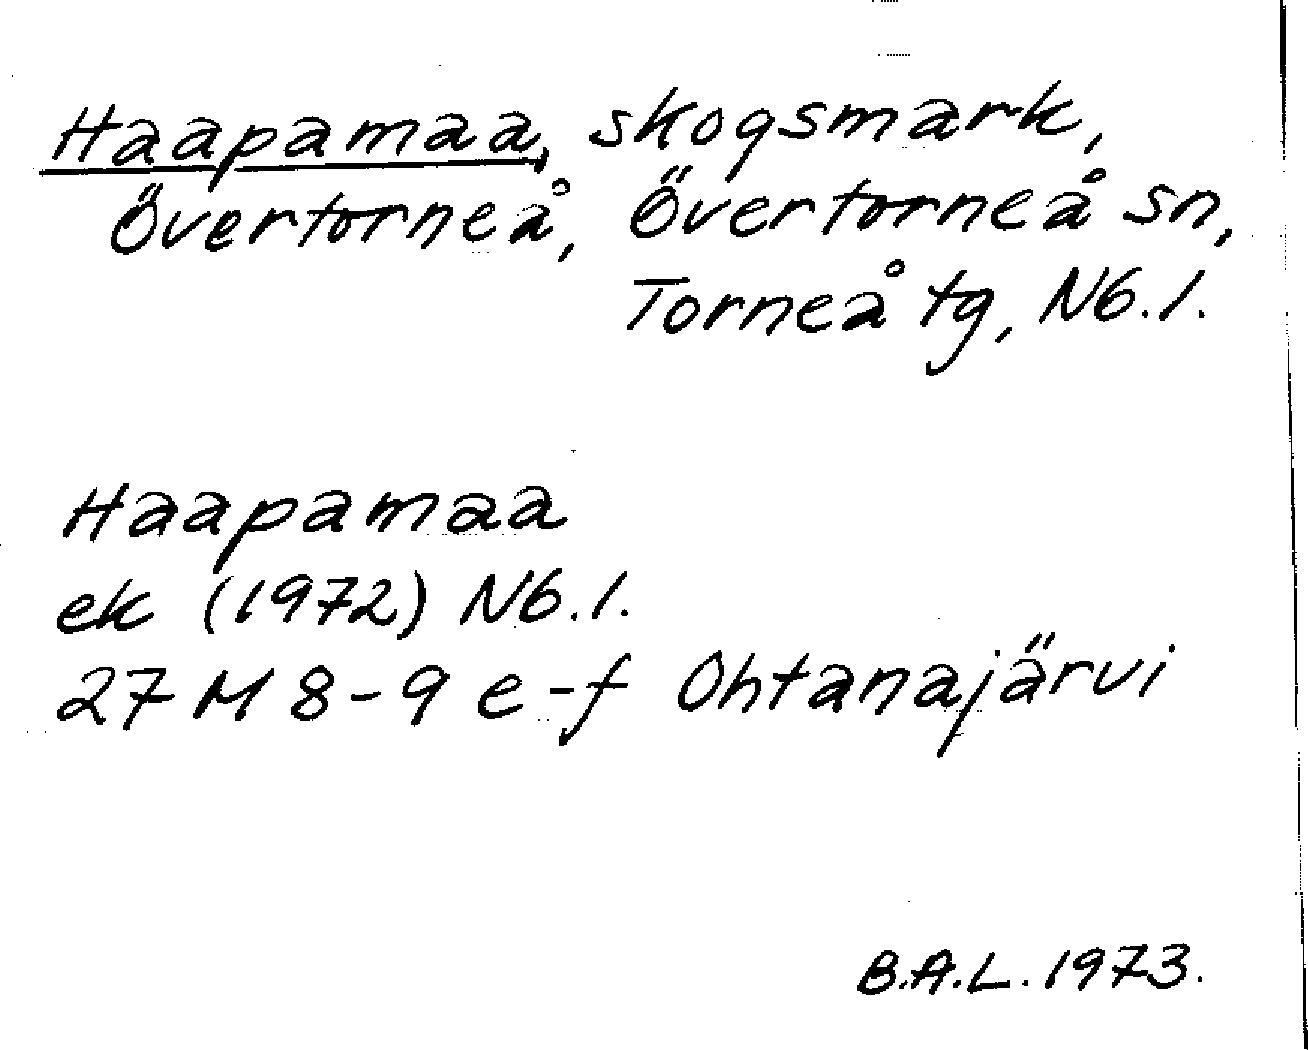 Haapamaa, skogsmark,
Övertorneå, Övertorneå sn,
Torneå tg, N6.1.
Haapamaa
ek (1972) N6.1.
27 M 8-9 e-f Ohtanajärvi
B.A.L. 1973.